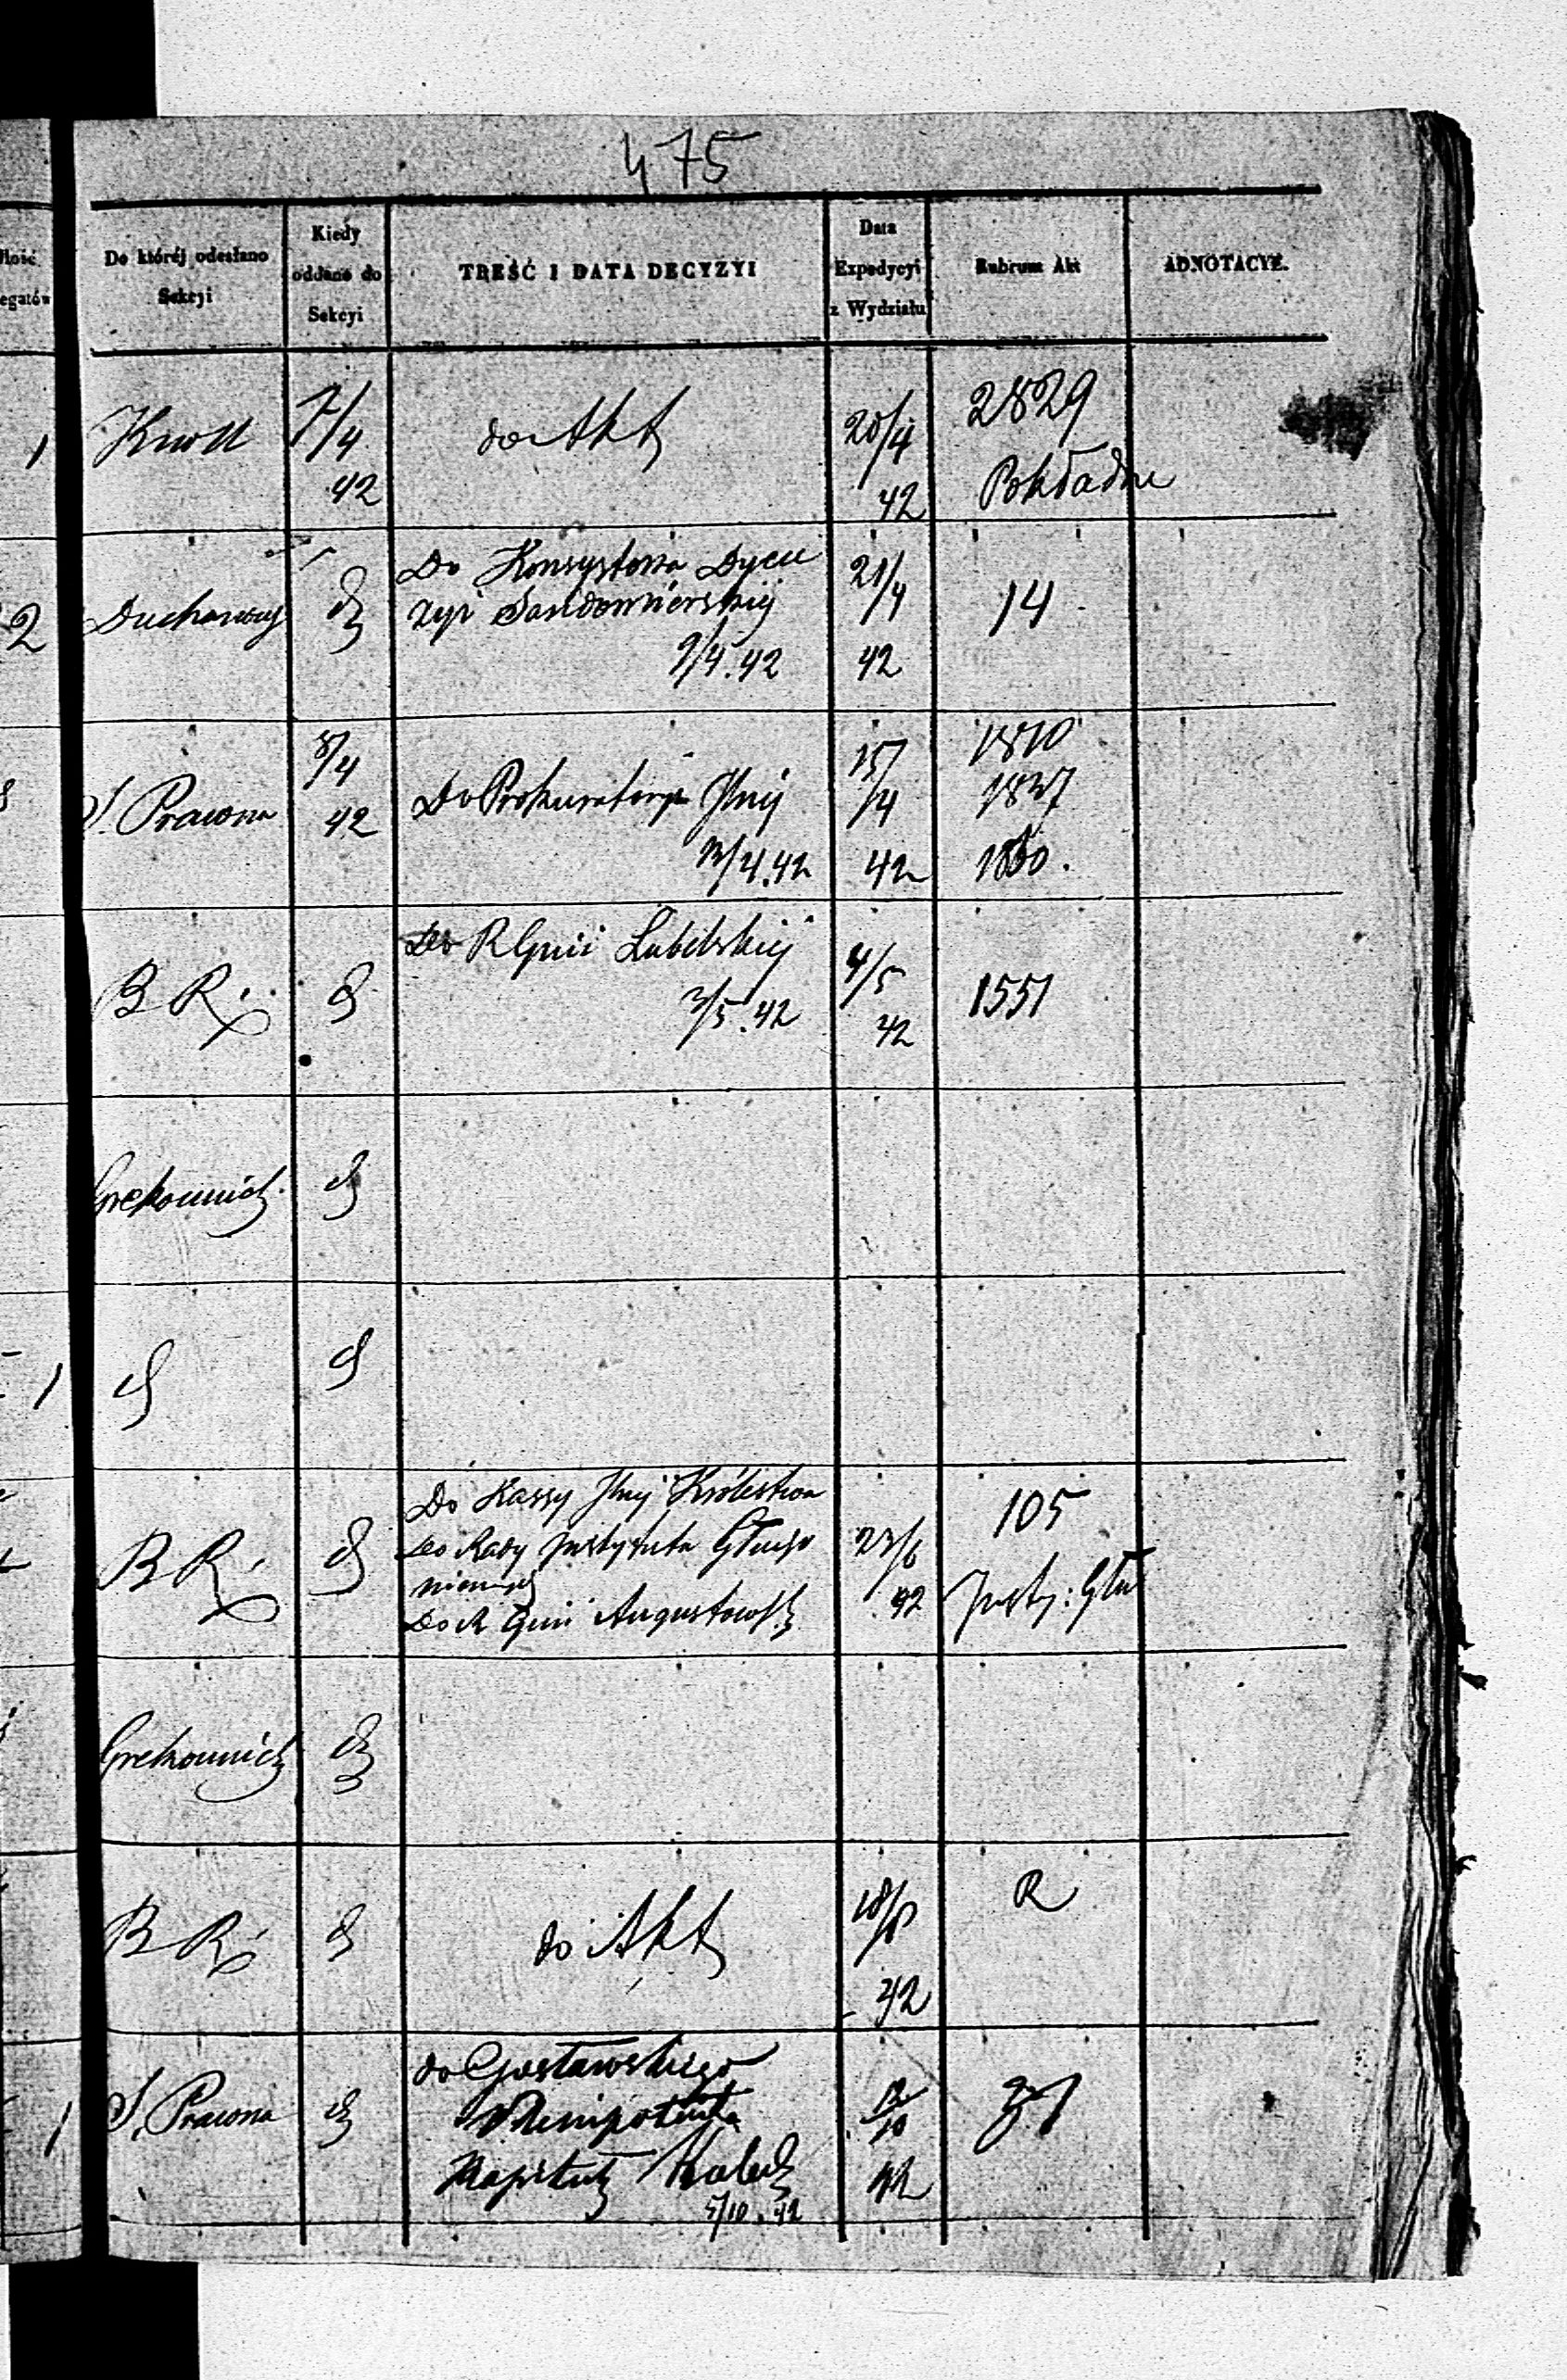 475
Ilość
egatów
Do któréj odesłano
Sekcyi
Kiedy
oddano do
Sekcyi
TREŚĆ I DATA DECYZYI
Data
Expedycyi
z Wydziału
Rubrum Akt
ADNOTACYE.
1
7/4
42
do Akt
20/4
42
2829
Pokładne
2
Duchowny
Do Konsystorza Dyece
zyi Sandomierskiej
9/4.42
21/4
42
14
S. Prawna
8/4
42
Do Prokuratoryi Jlnej
13/4.42
15/4
42
1810
1837
B R.
Do R Gnii Lubelskiej
3/5.42
4/5
42
1551
Grekowicz
1
B R.
Do Kassy Jlnej Królestwa
Do Rady Instytutu Głucho
niemych
Do R Gnii Augustowsk
23/6
42
105
Insty: Głu
Grekowicz
B R.
do Akt
18/8
42
R
1
S. Prawna
do Gosławskiego
Plenipotenta
Kapituły
5/10.42
12/10
42